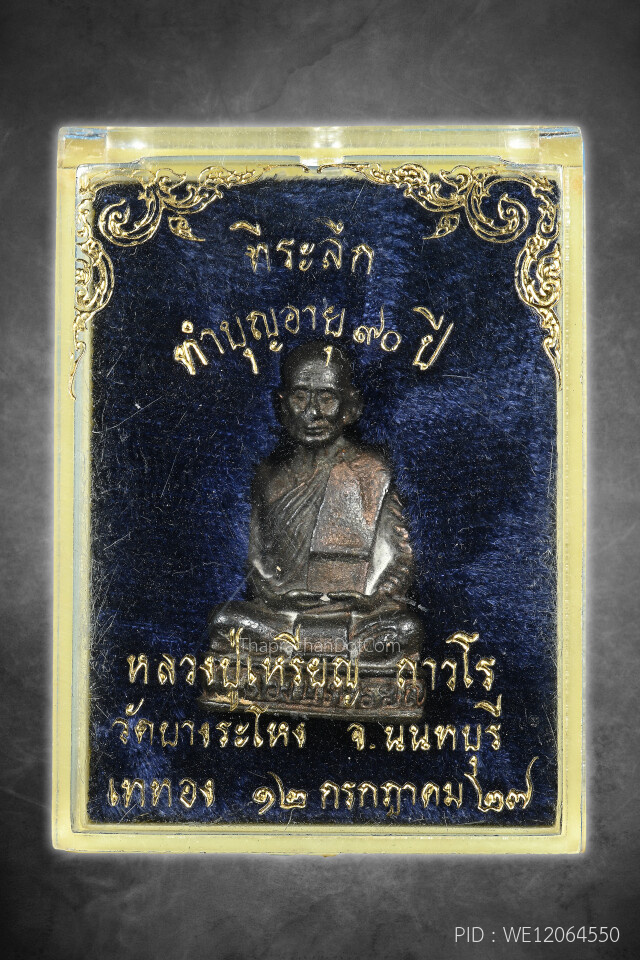 ที่ระลึก
ทำบุญอายุ ๙๐ ปี
ThaprachanDotCom
หลวงปู่เหรียญ ภาวโร
วัดบางระโหง จ.นนทบุรี
เททอง ๑๒ กรกฎาคม ๒๗
PID : WE12064550